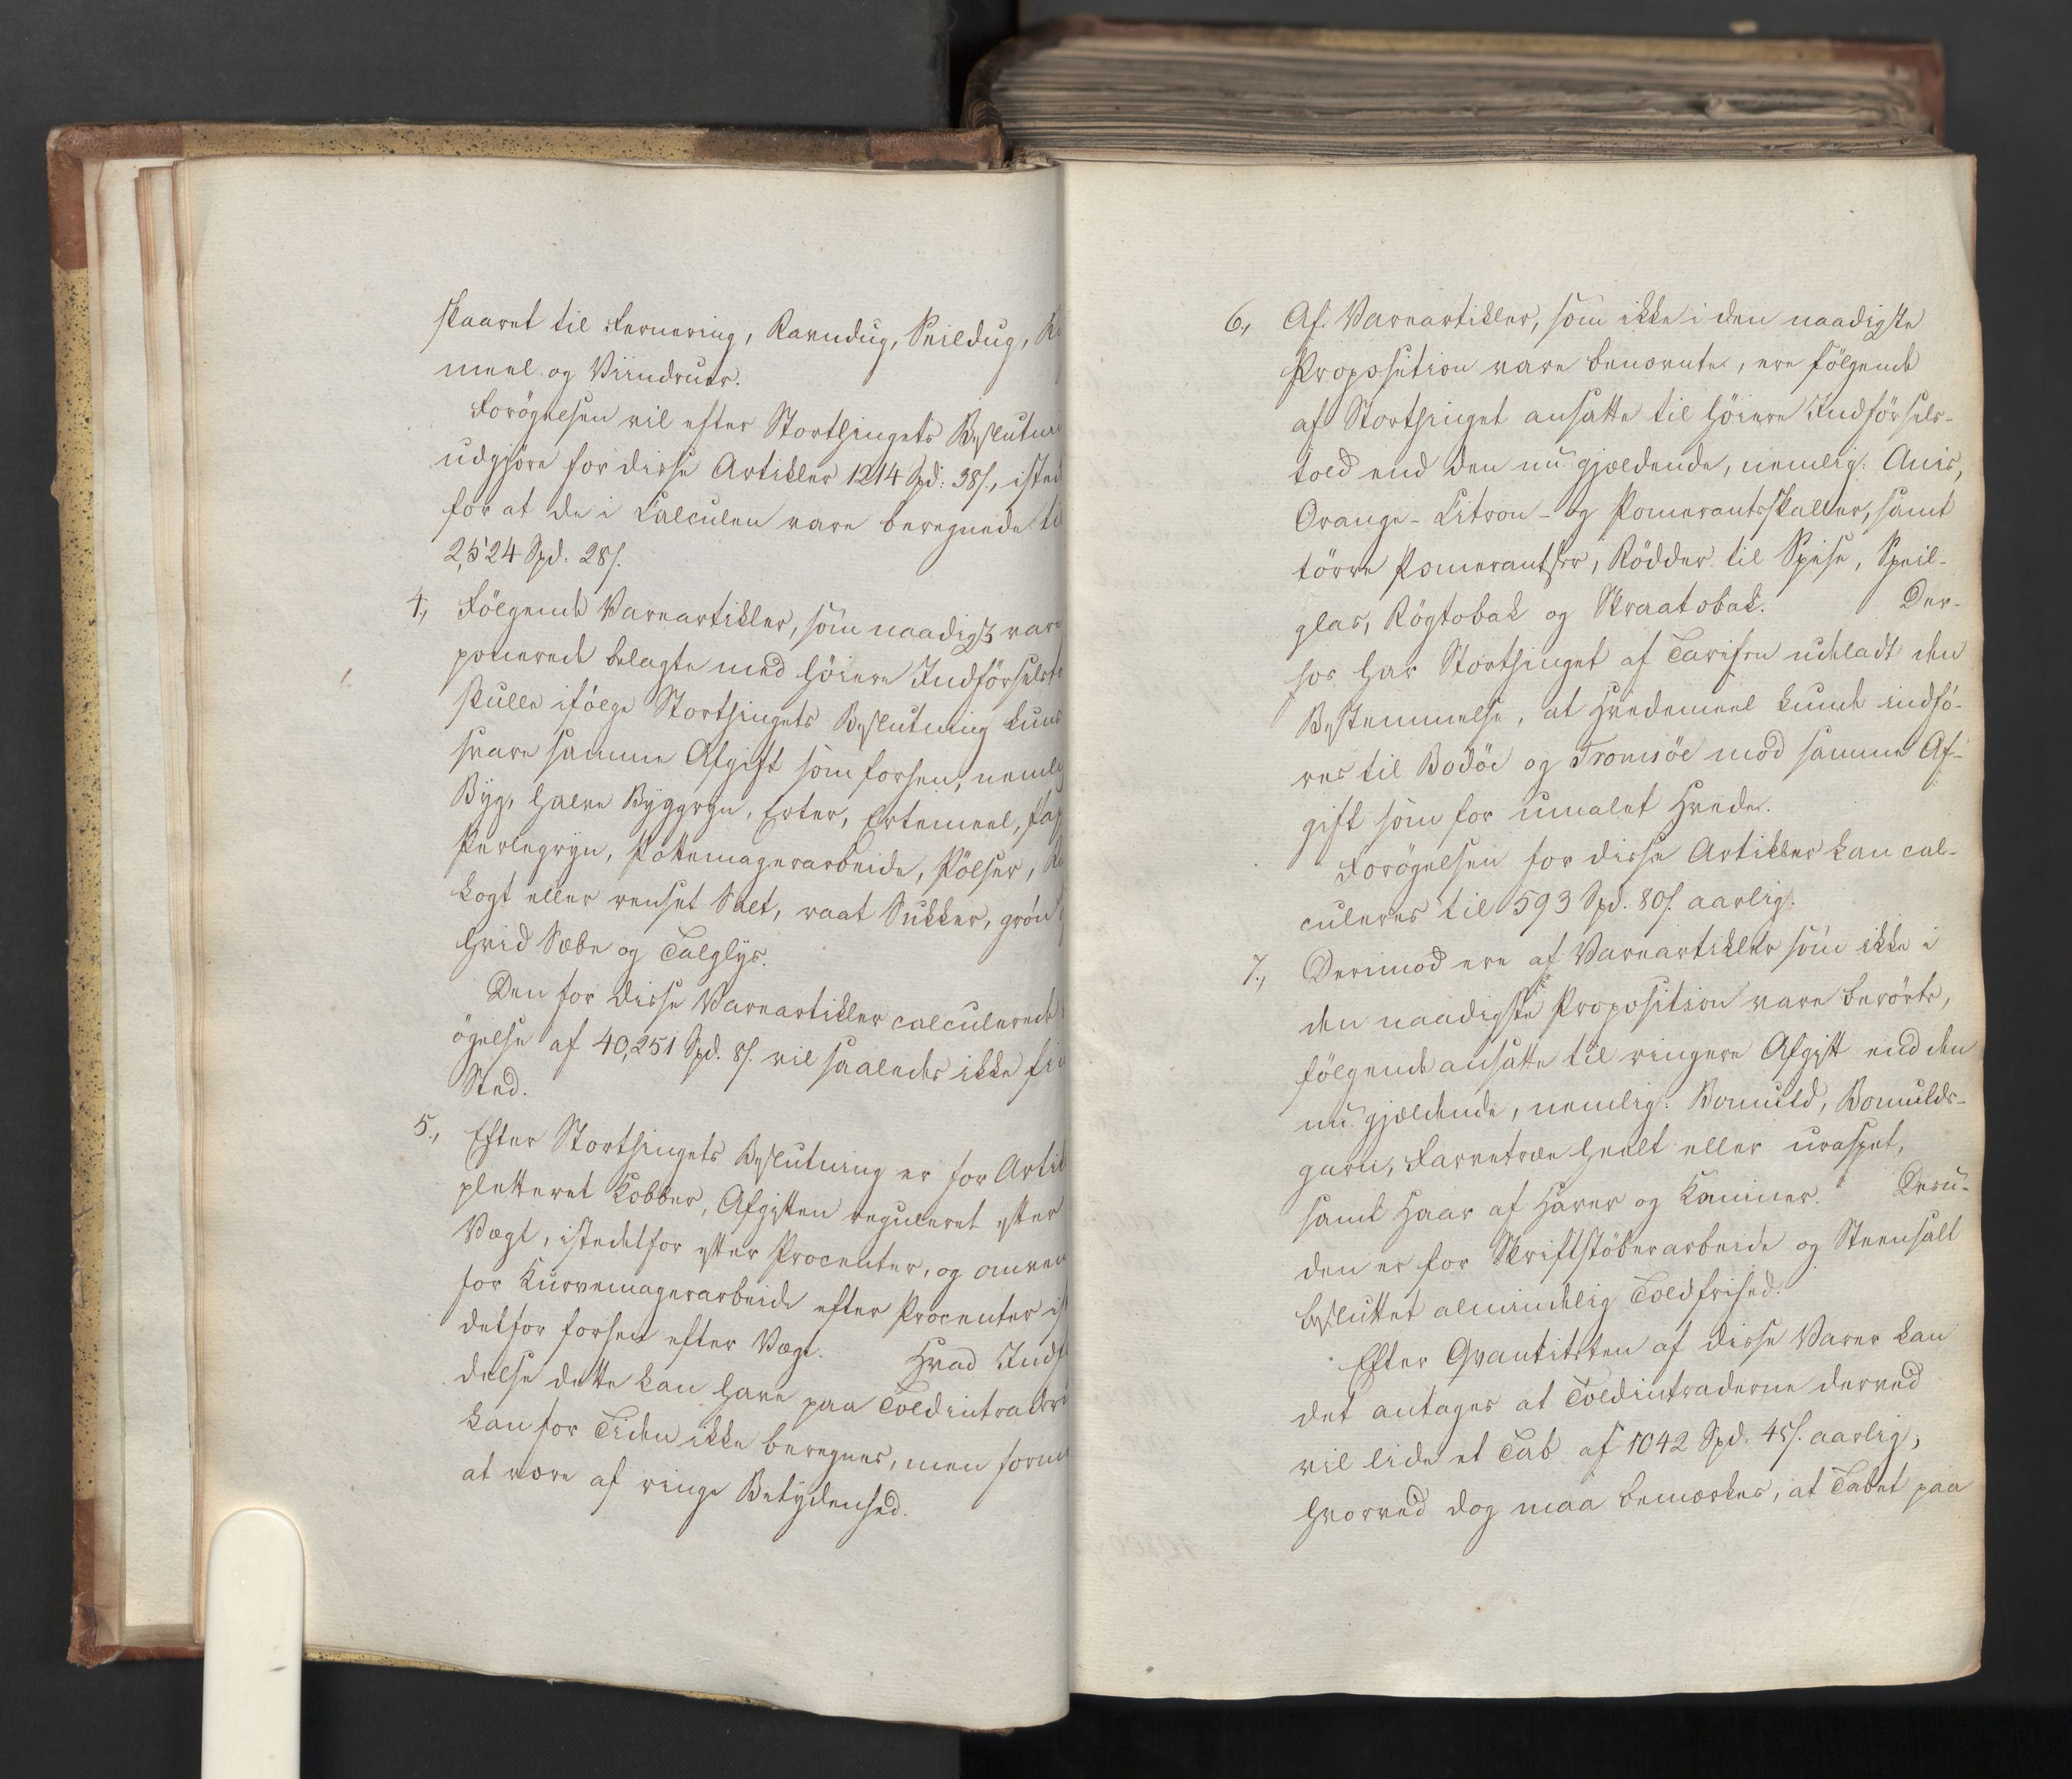 skaaret til Fernering, Ravndug, Seildug,
meel og Viindruer.
Forögelsen vil efter Storthingets Beslutni
udgjöre for disse Artikler 1214 Spd: 38 s., isted
for at de i Calculen vare beregnede til
2,524 Spd. 28 s.
4., Fölgende Vareartikler, som naadigst vare
ponerede belagte med höiere Indförselsto
skulle ifölge Storthingets Beslutning kuns
svare samme Afgift som forhen, nemlig
Byg, hale Byggryn, Erter, Ertemeel, Pap
Perlegryn, Pottemagerarbeide, Pölser,
kogt eller renset Salt, raat Sukker, grön
hvid Sæbe og Talglys.
Den for disse Vareartikler calculerede
ögelse af 40,251 Spd. 8 s. vil saaledes ikke fin
Sted.
5., Efter Storthingets Beslutning er for Artik
pletteret Kobber, Afgiften reguleret efter
Vægt, istedetfor efter Procenter, og omven
for Kurvemagerarbeide efter Procenter ist
detfor forhen efter Vægt. Hvad Indfl
delse dette kan have paa Toldintraderne
kan for Tiden ikke beregnes, men forme
at være af ringe Betydenhed.
6., Af Vareartikler, som ikke i den naadigste
Proposition vare benævnte, ere fölgende
af Storthinget ansatte til höiere Indförsels-
told end den nu gjældende, nemlig: Anis,
Orange- Citron- og Pomerantsskaller, samt
törre Pomerantser, Rödder til Spise, Speil-
glas, Rögtobak og Skraatobak. Der-
hos har Storthinget af Tarifen udeladt den
Bestemmelse, at Hvedemeel kunde indfö-
res til Bodöe og Tromsöe mod samme Af-
gift som for umalet Hvede.
Forögelsen for disse Artikler kan cal-
culeres til 593 Spd. 80 s. aarlig.
7., Derimod ere af Vareartikler som ikke i
den naadigste Proposition vare berörte,
fölgende ansatte til ringere Afgift end den
nu gjældende, nemlig: Bomuld, Bomulds-
garn, Farvetræe heelt eller uraspet,
samt Haar af Harer og Kaniner. Desu-
den er for Skriftstöberarbeide og Steensalt
besluttet almindelig Toldfrihed.
Efter Qvantiteten af disse Varer kan
det antages at Toldintraderne derved
vil lide et Tab af 1042 Spd. 45 s. aarlig;
hvorved dog maa bemærkes, at Tabet paa